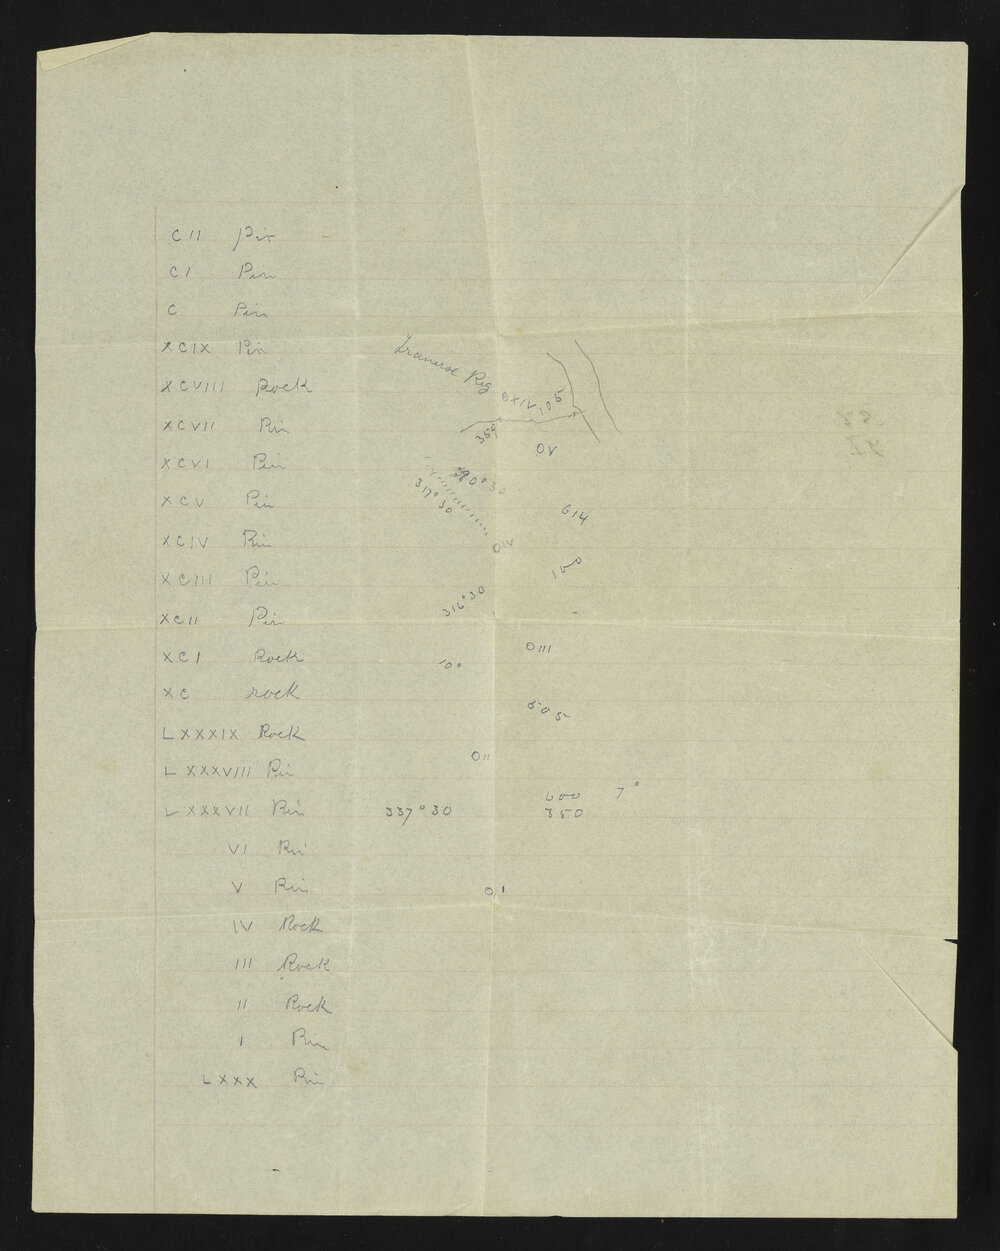 C II Pin
C I Pin
C Pin
XCIX Pin
XCVIII Rock
XCVII Pin
XCVI Pin
XCV Pin
XCIV Pin
XCIII Pin
XCII Pin
XCI Rock
XC rock
LXXXIX Rock
LXXXVIII Pin
LXXXVII Pin
VI Pin
V Pin
IV Rock
III Rock
II Rock
I Pin
LXXX Pin
Traverse
XIV 105
35°
O V
90°30
317°30
614
O IV
100
316°30
O III
10°
505
O II
600 7°
337°30 350
O I